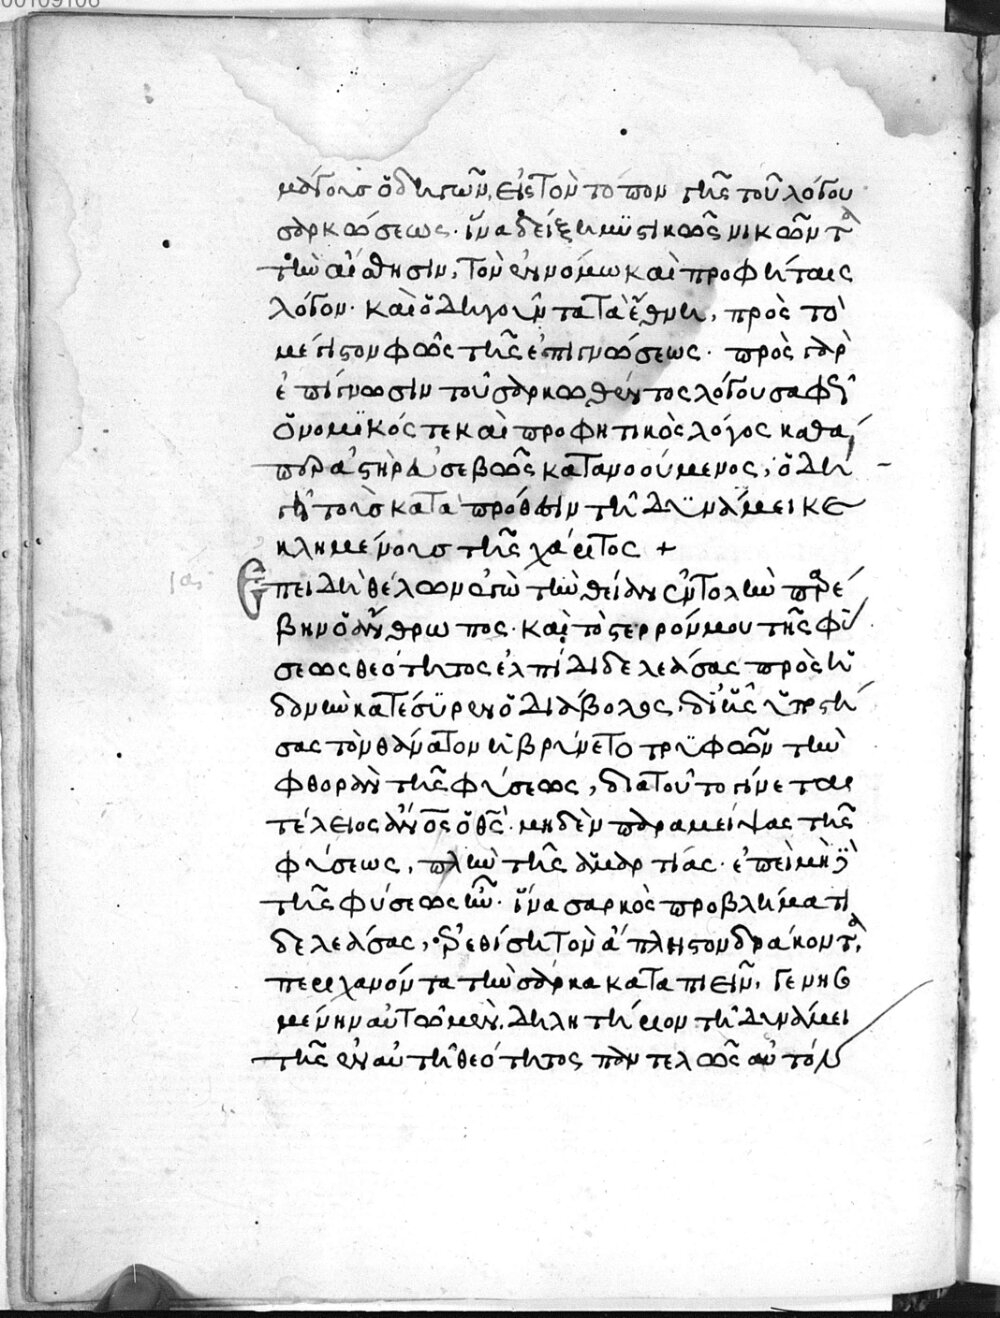 00109106
μάγοις ὁδηγῶν, εἰς τὸν τόπον τῆς τοῦ λόγου
σαρκώσεως· ἵνα δείξη μυστικῶς νικῶντα
τὴν αἴσθησιν, τὸν ἐν νόμω καὶ προφήταις
λόγον· καὶ ὁδηγοῦντα τὰ ἔθνη, πρὸς τὸ
μέγιστον φῶς τῆς ἐπιγνώσεως· πρὸς γὰρ
ἐπίγνωσιν τοῦ σαρκωθέντος λόγου σαφῶς
ὁ νομικός τε καὶ προφητικὸς λόγος καθά
περ ἀστὴρ εὐσεβῶς κατανοούμενος, ὁδη
γεῖ τοὺς κατὰ πρόθεσιν τῆ δυνάμει κε
κλημένους τῆς χάριτος +
Ἐπειδὴ θέλων ἐγὼ τὴν θείαν ἐντολὴν παρέ
βην ὁ ἄνθρωπος· καὶ τὸ στερρόν μου τῆς φύ
σεως θεότητος ἐλπίδι δελεάσας πρὸς ἡ
δονὴν κατέσυρεν ὁ διάβολος, δι' ἧς ὑποστή
σας τὸν θάνατον ἡβρύνετο τρυφῶν τὴν
φθορὰν τῆς φύσεως, διὰ τοῦτο γίνεται
τέλειος ἄνος ὁ θς· μηδὲν παραμείψας τῆς
φύσεως, πλὴν τῆς ἁμαρτίας· ἐπεὶ μὴ δὲ
τῆς φύσεως ἦν· ἵνα σαρκὸς προβλήματι
δελεάσας, ἐρεθίση τὸν ἄπληστον δράκοντα,
περιχανόντα τὴν σάρκα καταπιεῖν, γενησο
μένην αὐτῶ μὲν, δηλητήριον τῆ δυνάμει
τῆς ἐν αὐτῆ θεότητος παντελῶς αὐτὸν